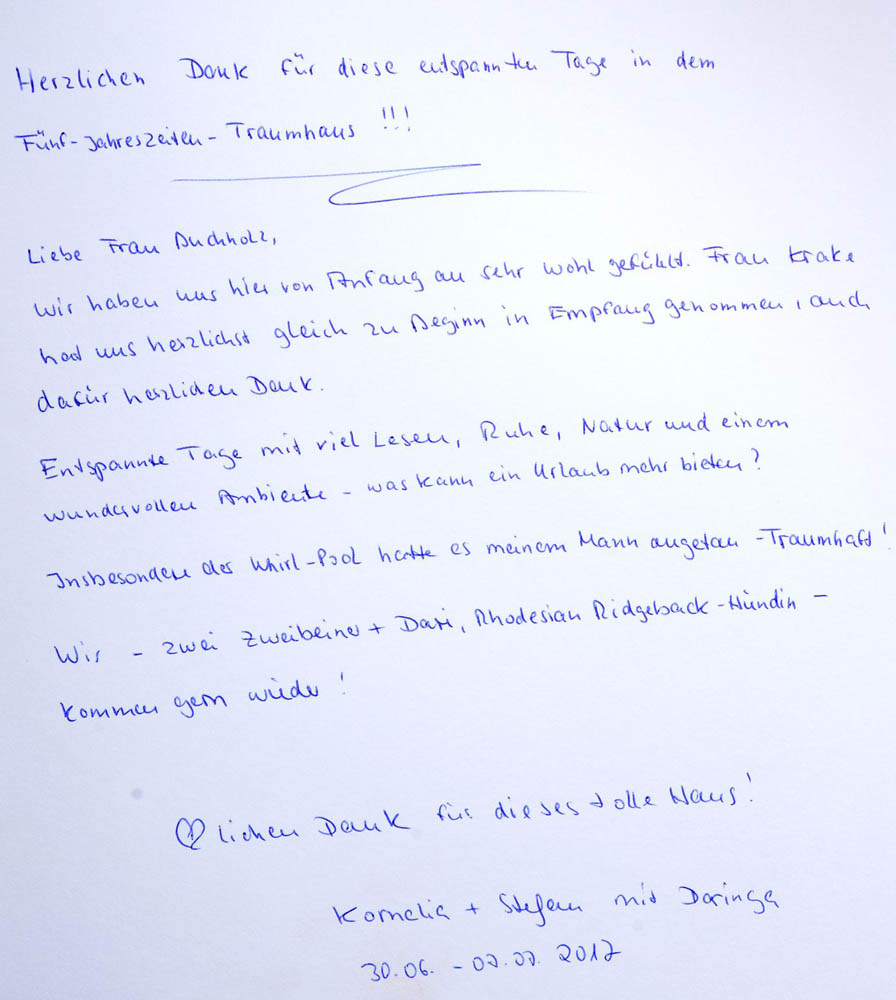 Herzlichen Dank für diese entspannten Tage in dem
Fünf-Jahreszeiten-Traumhaus !!!
Liebe Frau Buchholz,
wir haben uns hier von Anfang an sehr wohl gefühlt. Frau Krake
hat uns herzlichst gleich zu Beginn in Empfang genommen, auch
dafür herzlichen Dank.
Entspannte Tage mit viel Lesen, Ruhe, Natur und einem
wundervollen Ambiente – was kann ein Urlaub mehr bieten?
Insbesondere der Whirl-Pool hatte es meinem Mann angetan – Traumhaft!
Wir – zwei Zweibeiner + Dari, Rhodesian Ridgeback-Hündin –
kommen gern wieder!
♡lichen Dank für dieses tolle Haus!
Kornelia + Stefan mit Daringa
30.06. – 07.07. 2017